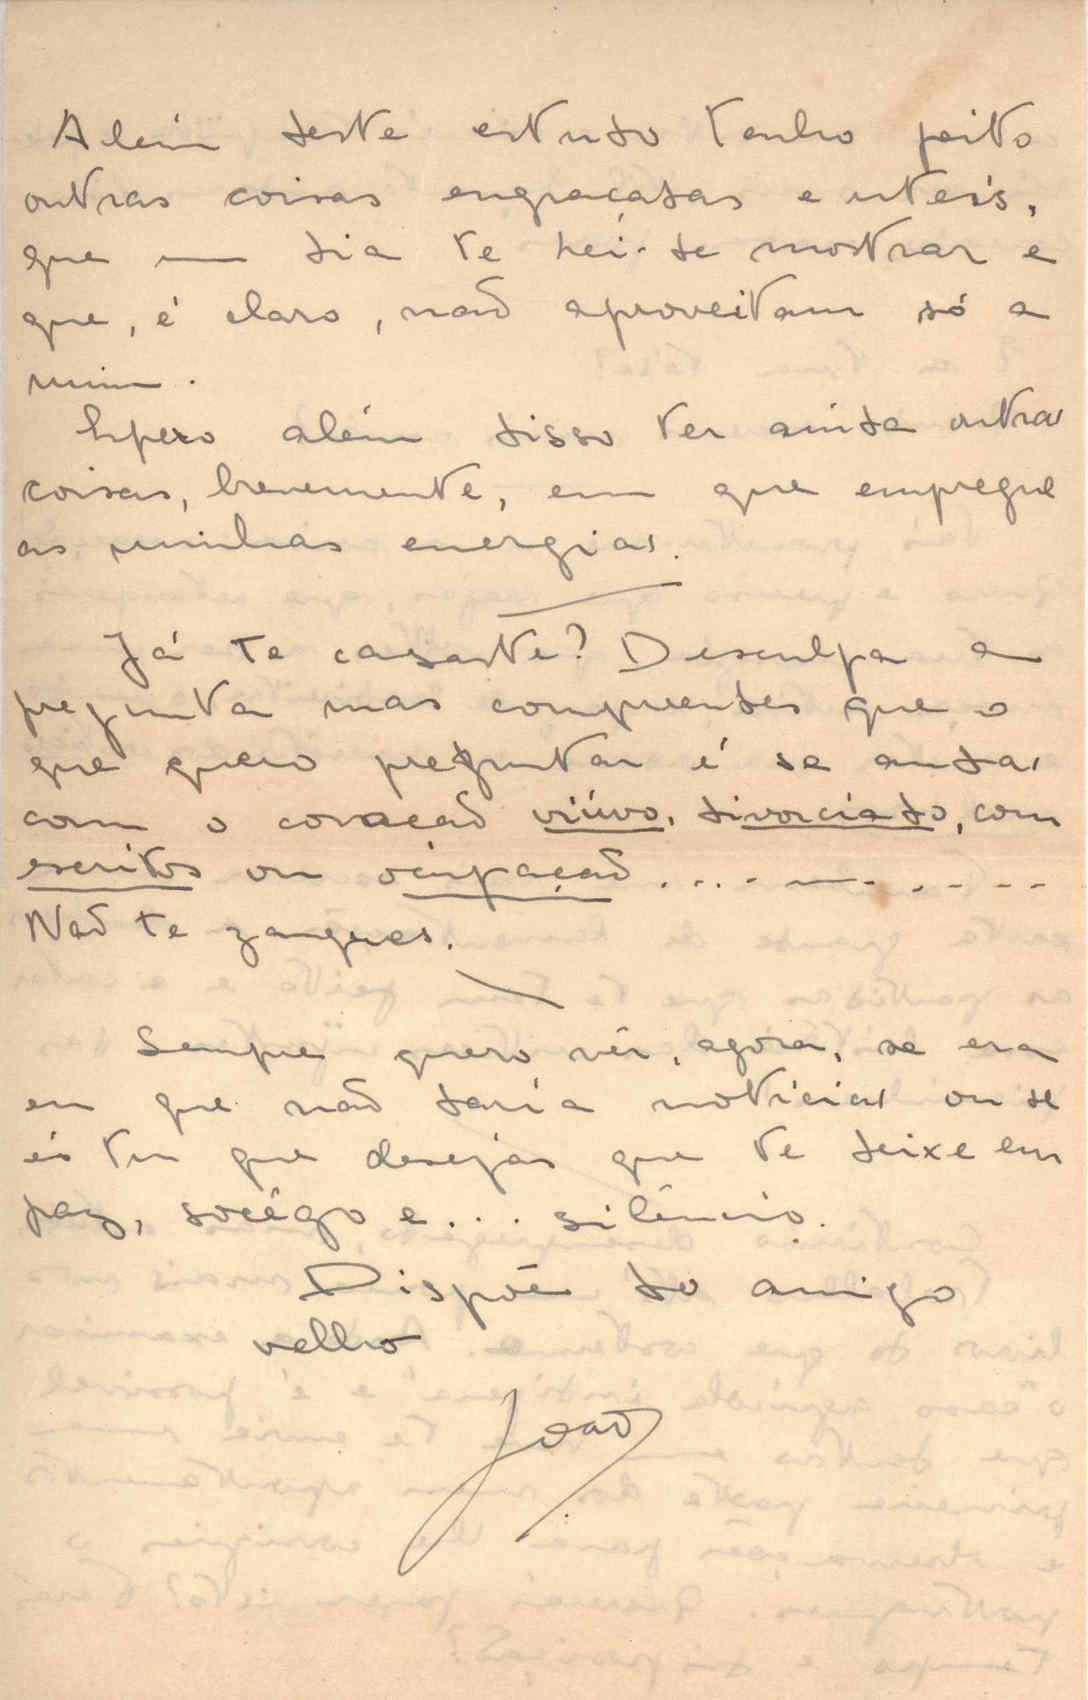 Além deste estudo tenho feito
outras coisas engraçadas e uteis,
que um dia te hei-de mostrar e
que, é claro, não aproveitam só a
mim.
Espero além disso ter ainda outras
coisas, brevemente, em que empregue
as minhas energias.
Já te casaste? Desculpa a
pregunta mas compreendes que o
que quero preguntar é se andas
com o coração viúvo, divorciado, com
escritos ou ocupação . . . . — . . . . .
Não te zangues.
Sempre quero vêr, agora, se era
eu que não daria noticias ou se
és tu que desejas que te deixe em
paz, socêgo e... silêncio.
Dispõe do amigo
velho
João